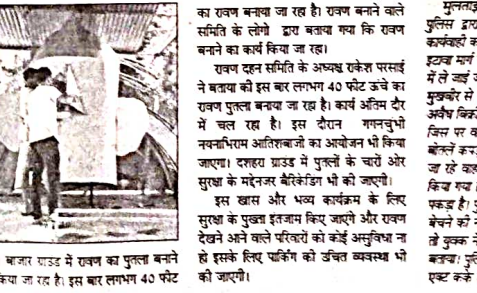 बाजार ग्राउंड में रावण का पुतला बनाने
किया जा रहा है। इस बार लगभग 40 फीट
का रावण बनाया जा रहा है। रावण बनाने वाले
समिति के लोगो द्वारा बताया गया कि रावण
बनाने का कार्य किया जा रहा।
रावण दहन समिति के अध्यक्ष राकेश परसाई
ने बताया की इस बार लगभग 40 फीट ऊंचे का
रावण पुतला बनाया जा रहा है। कार्य अंतिम दौर
में चल रहा है। इस दौरान गगनचुंभी
नयनाभिराम आतिशबाजी का आयोजन भी किया
जाएगा। दशहरा ग्राउंड में पुतलों के चारों ओर
सुरक्षा के मद्देनजर बैरिकेडिंग भी की जाएगी।
इस खास और भव्य कार्यक्रम के लिए
सुरक्षा के पुख्ता इंतजाम किए जाएंगे और रावण
देखने आने वाले परिवारों को कोई असुविधा ना
हो इसके लिए पार्किंग की उचित व्यवस्था भी
की जाएगी।
मुलताई
पुलिस द्वारा
कार्यवाही क
इटावा मार्ग
में ले जाई ज
मुखबीर से
अवैध बिक्री
जिस पर व
बोतलें कर
जा रहे वाह
किया गया।
पकड़ा है। पु
बेचने की
तो युवक ने
बताया। पुलि
एक्ट के